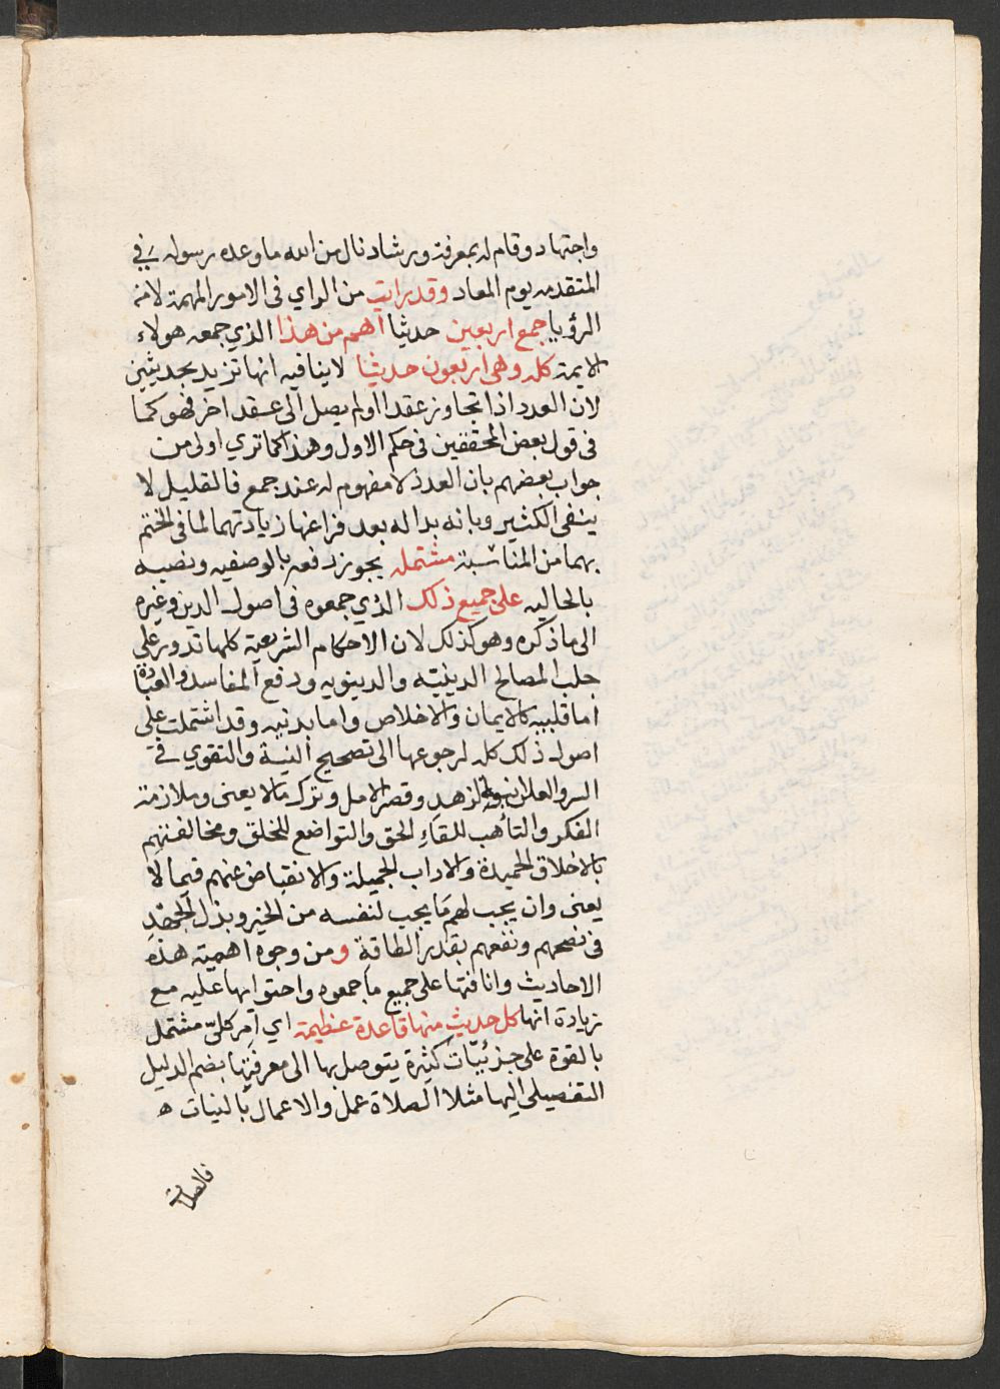 واجتهاد وقام له بمعرفة ورشاد نال من الله ما وعده رسوله في
المتقدمه يوم المعاد وقد رايت من الراي في الامور المهمة لا من
الرؤيا جمع اربعين حديثا اهم من هذا الذي جمعه هولاء
الايمة كله وهي اربعون حديثا لا ينافيه انها تزيد بحديثين
لان العدد اذا تجاوز عقدا اولم يصل الى عقد اخر فهو كما
في قول بعض المحققين في حكم الاول وهذا كما تري اولى من
جواب بعضهم بان العدد لا مفهوم له عند جمع فالقليل لا
ينفى الكثير وبانه بدا له بعد فراغها زيادتهما لما في الختم
بهما من المناسبة مشتمله يجوز رفعه بالوصفيه ونصبه
بالحاليه على جميع ذلك الذي جمعوه في اصول الدين وغيره
الى ما ذكره وهو كذلك لان الاحكام الشريعة كلها تدور على
جلب المصالح الدينيه والدينويه ودفع المفاسد والعبادة
اما قلبيه كالايمان والاخلاص واما بدنيه وقد اشتملت على
اصول ذلك كله لرجوعها الى تصحيح النية والتقوي في
السر والعلانيه والزهد وقصر الامل وترك مالا يعنى وملازمة
الفكر والتأهب للقاء الحق والتواضع للخلق ومخالفتهم
بالاخلاق الحميدة والاداب الجميلة والانقباض عنهم فيما لا
يعنى وان يحب لهم ما يحب لنفسه من الخير وبذل الجهد
في نصحهم ونفعهم بقدر الطاقة ومن وجوه اهميته هذه
الاحاديث وانافتها على جميع ما جمعوه واحتوايها عليه مع
زيادة انها كل حديث منها قاعدة عظيمة اي امر كلي مشتمل
بالقوة على جزئيات كثيرة يتوصل بها الى معرفتها بضم الدليل
التفصيلى اليها مثلا الصلاة عمل والاعمال بالنيات ه
فالصلاة